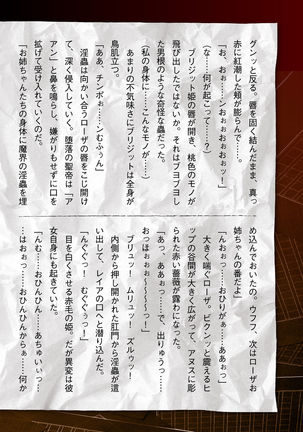 グンッと反る。唇を固く結んだまま、真っ
赤に紅潮した頬が膨らんで……。
「お、おぉ……ンおぉぉおぉおぉッ！」
（な……何が起こって……？）
ブリジット姫の唇が開き、桃色のモノが
飛び出したではないか。それはブヨブヨし
た男根のような奇怪な蟲だった。
（私の身体に……こんなモノが……）
あまりの不気味さにブリジットは全身が
鳥肌立つ。
「ああ、チンポぉ……ンむふぅん」
淫蟲は向かい合うローザの唇をこじ開け
て、深く侵入していく。堕落の聖帝は「ア
アン」と鼻を鳴らし、嫌がりもせずに口を
拡げて受け入れていくのだ。
「お姉ちゃんたちの身体に魔界の淫蟲を埋
め込んでおいたの。ウフフ、次はローザお
姉ちゃんの番だよ」
「んおぉっ……おひりがぁ……ああぁっ」
大きく喘ぐローザ。ビクンッと震えるヒ
ップの谷間が大きく広がって、アヌスに彫
られた赤い薔薇が露わになった。
「あっ、ああぁっ……で、出りゅうっ……
おっほぉぉぉ〜〜〜〜〜っ！」
ブリュッ！ ムリュッ！ ズルゥッ！
内側から押し開かれた肛門から淫蟲が這
い出して、レイアの口へと潜り込んだ。
「んぐぐっ！ むぐぐぅっ！」
目を白くさせる赤毛の姫。だが異変は彼
女自身にも起きていた。
「んむ……おひんひん……あちゅいいっ…
…はおぉっ……おひんひんからぁ……何か